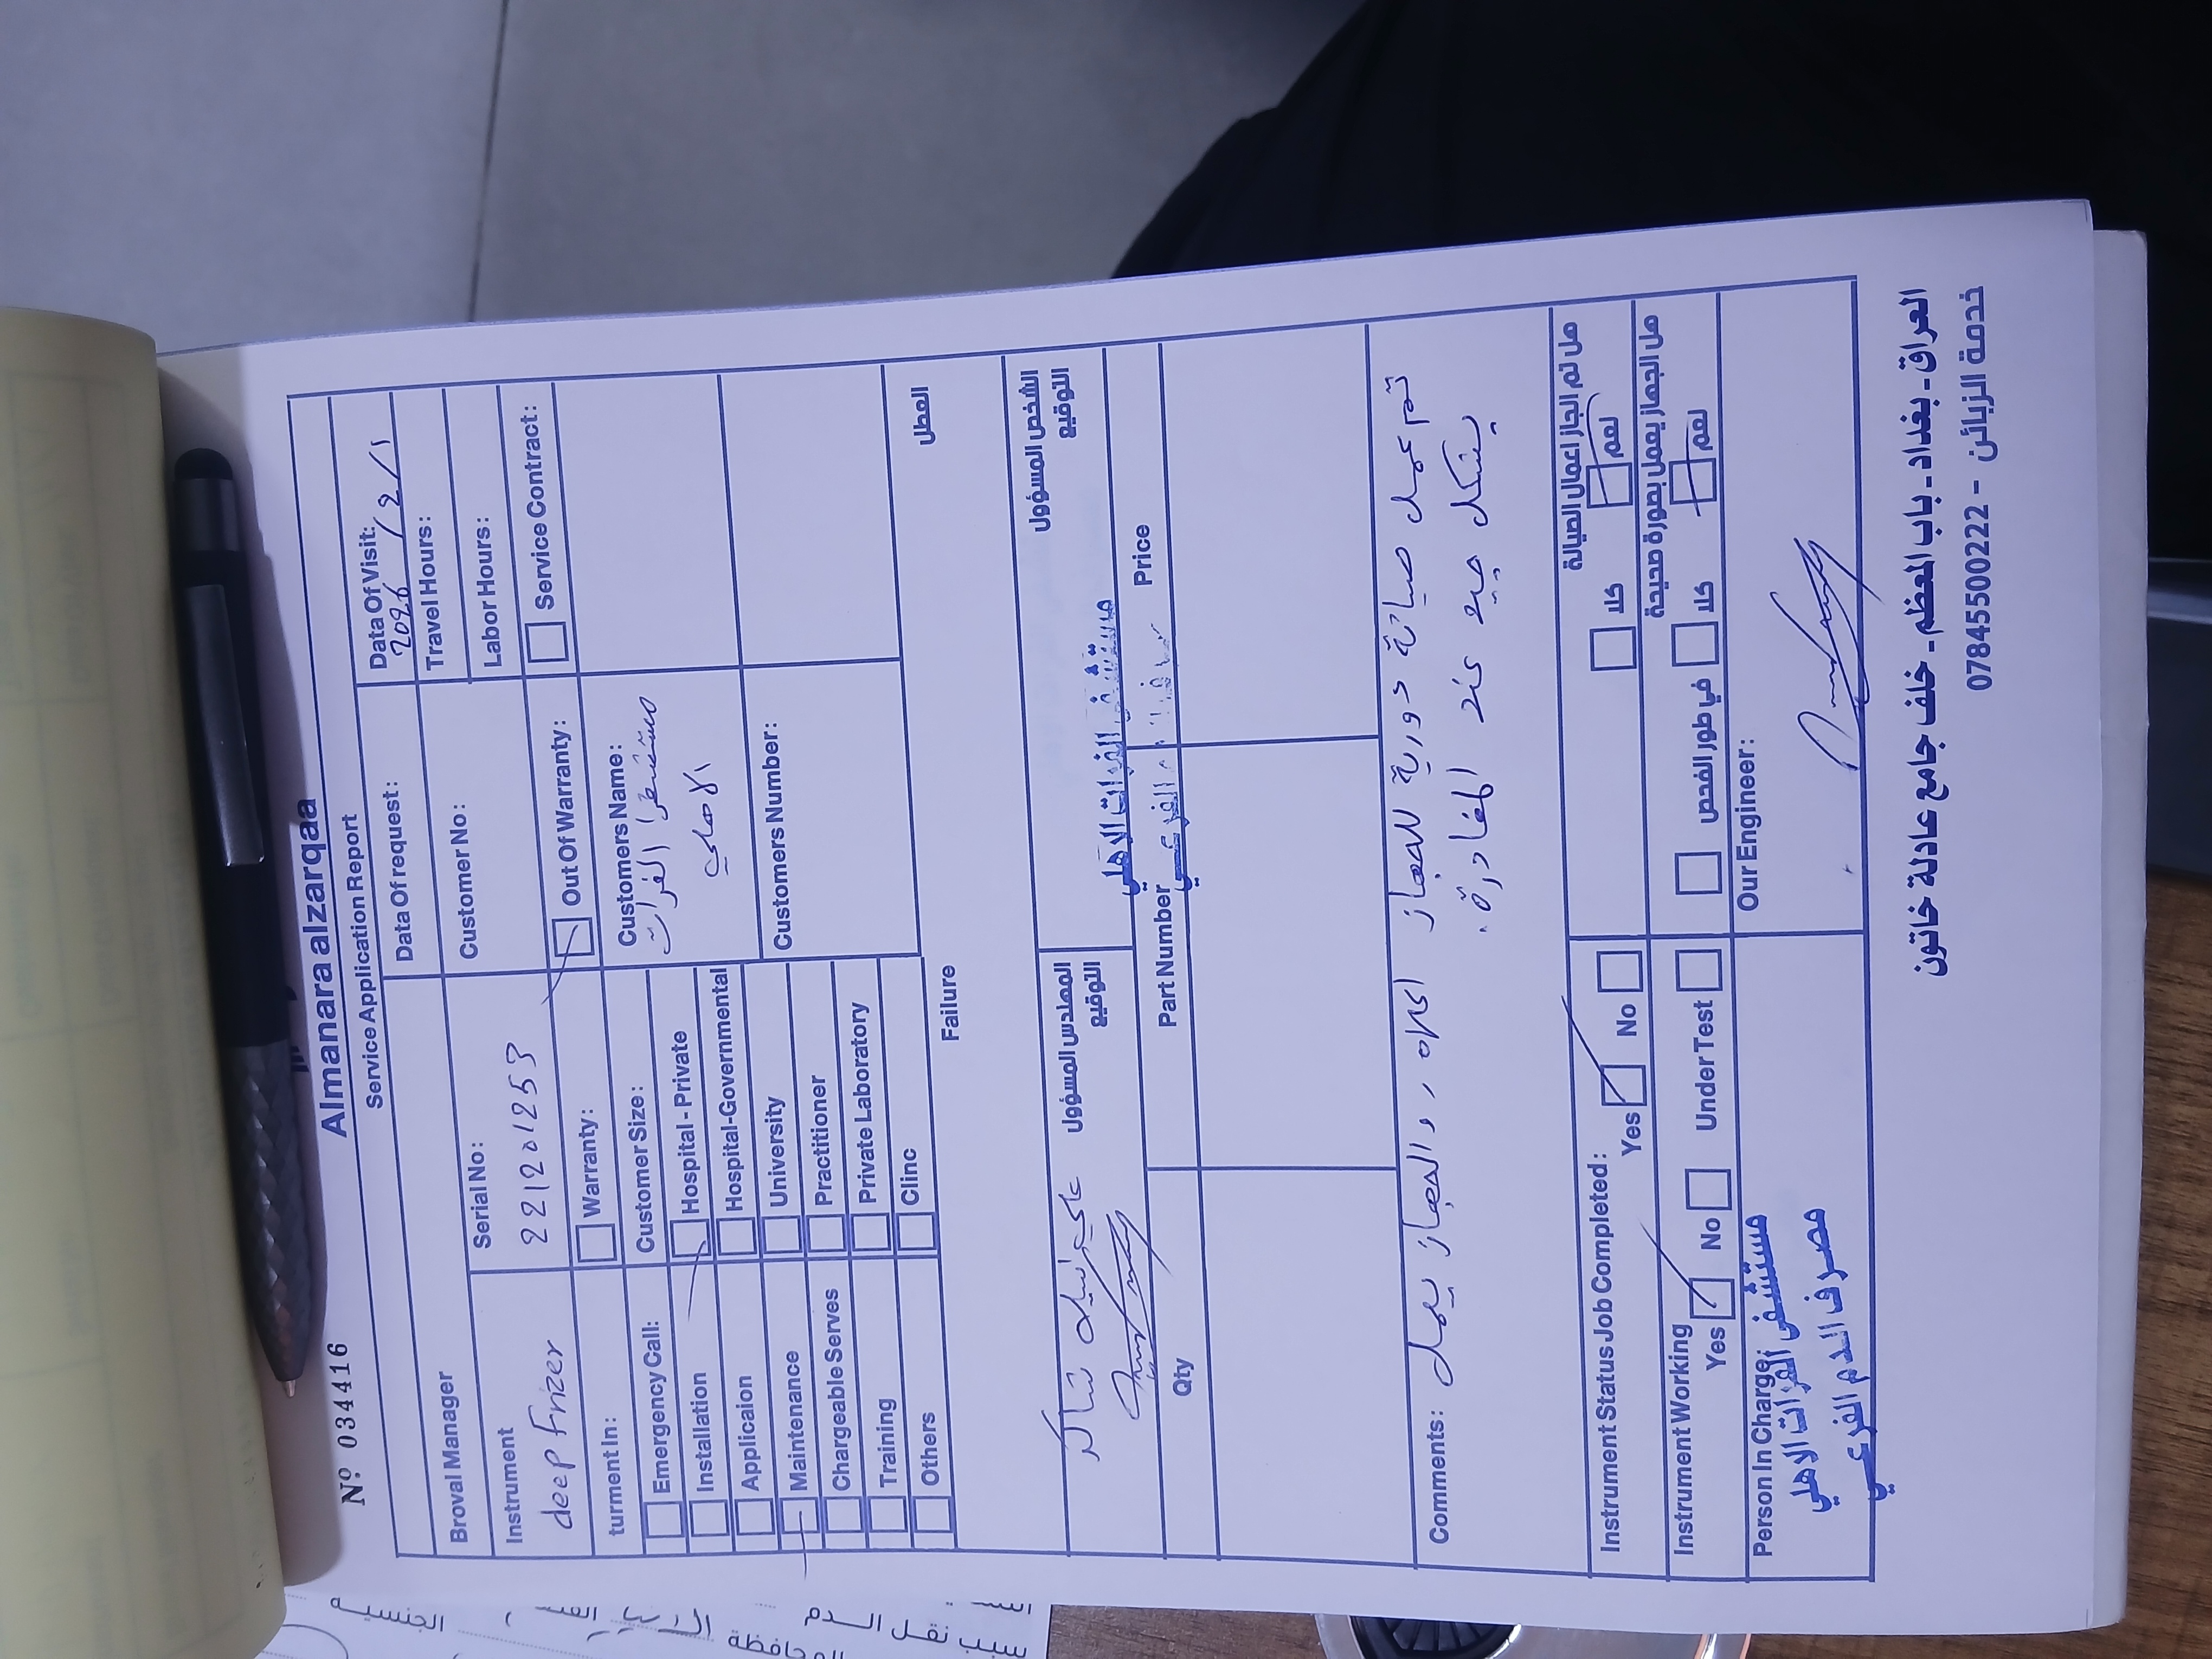 Nº 034416
Almanara alzarqaa
Service Application Report
Data Of request:
Data Of Visit:
2026/2/1
Broval Manager
Customer No:
Travel Hours:
Labor Hours:
Instrument
deep frizer
Serial No:
221201253
Out Of Warranty:
Service Contract:
turment In:
Warranty:
Emergency Call:
Installation
Applicaion
Maintenance
Chargeable Serves
Training
Others
Customer Size:
Hospital - Private
Hospital-Governmental
University
Practitioner
Private Laboratory
Clinc
Customers Name:
مستشفى الفرات
الاهلي
Customers Number:
Failure
العطل
المهندس المسؤول
التوقيع
الشخص المسؤول
التوقيع
مستشفى الفرات الاهلي
الفرعي
Qty
Part Number
Price
Comments:
تم عمل صيانة دورية للجهاز اعلاه , والجهاز يعمل
بشكل جيد عند المغادرة.
Instrument Status Job Completed:
Yes
No
هل تم انجاز اعمال الصيانة
كلا
نعم
Instrument Working
Yes
No
Under Test
هل الجهاز يعمل بصورة صحيحة
في طور الفحص
كلا
نعم
Person In Charge:
مستشفى الفرات الاهلي
مصرف الدم الفرعي
Our Engineer:
العراق - بغداد - باب المعظم - خلف جامع عادلة خاتون
خدمة الزبائن - 07845500222
سبب نقل الدم
الجنسية